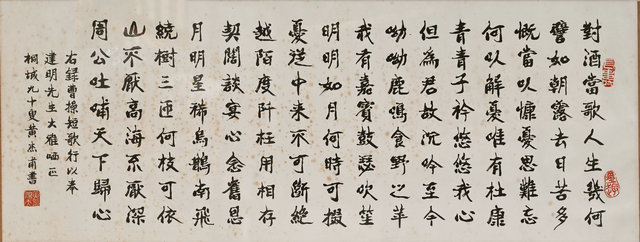 對酒當歌人生幾何
譬如朝露去日苦多
慨當以慷憂思難忘
何以解憂唯有杜康
青青子衿悠悠我心
但為君故沉吟至今
呦呦鹿鳴食野之苹
我有嘉賓鼓瑟吹笙
明明如月何時可掇
憂從中來不可斷絕
越陌度阡枉用相存
契闊談宴心念舊恩
月明星稀烏鵲南飛
繞樹三匝何枝可依
山不厭高海不厭深
周公吐哺天下歸心
右録曹操短歌行以奉
建明先生大雅哂正
桐城九十叟黃杰甫書